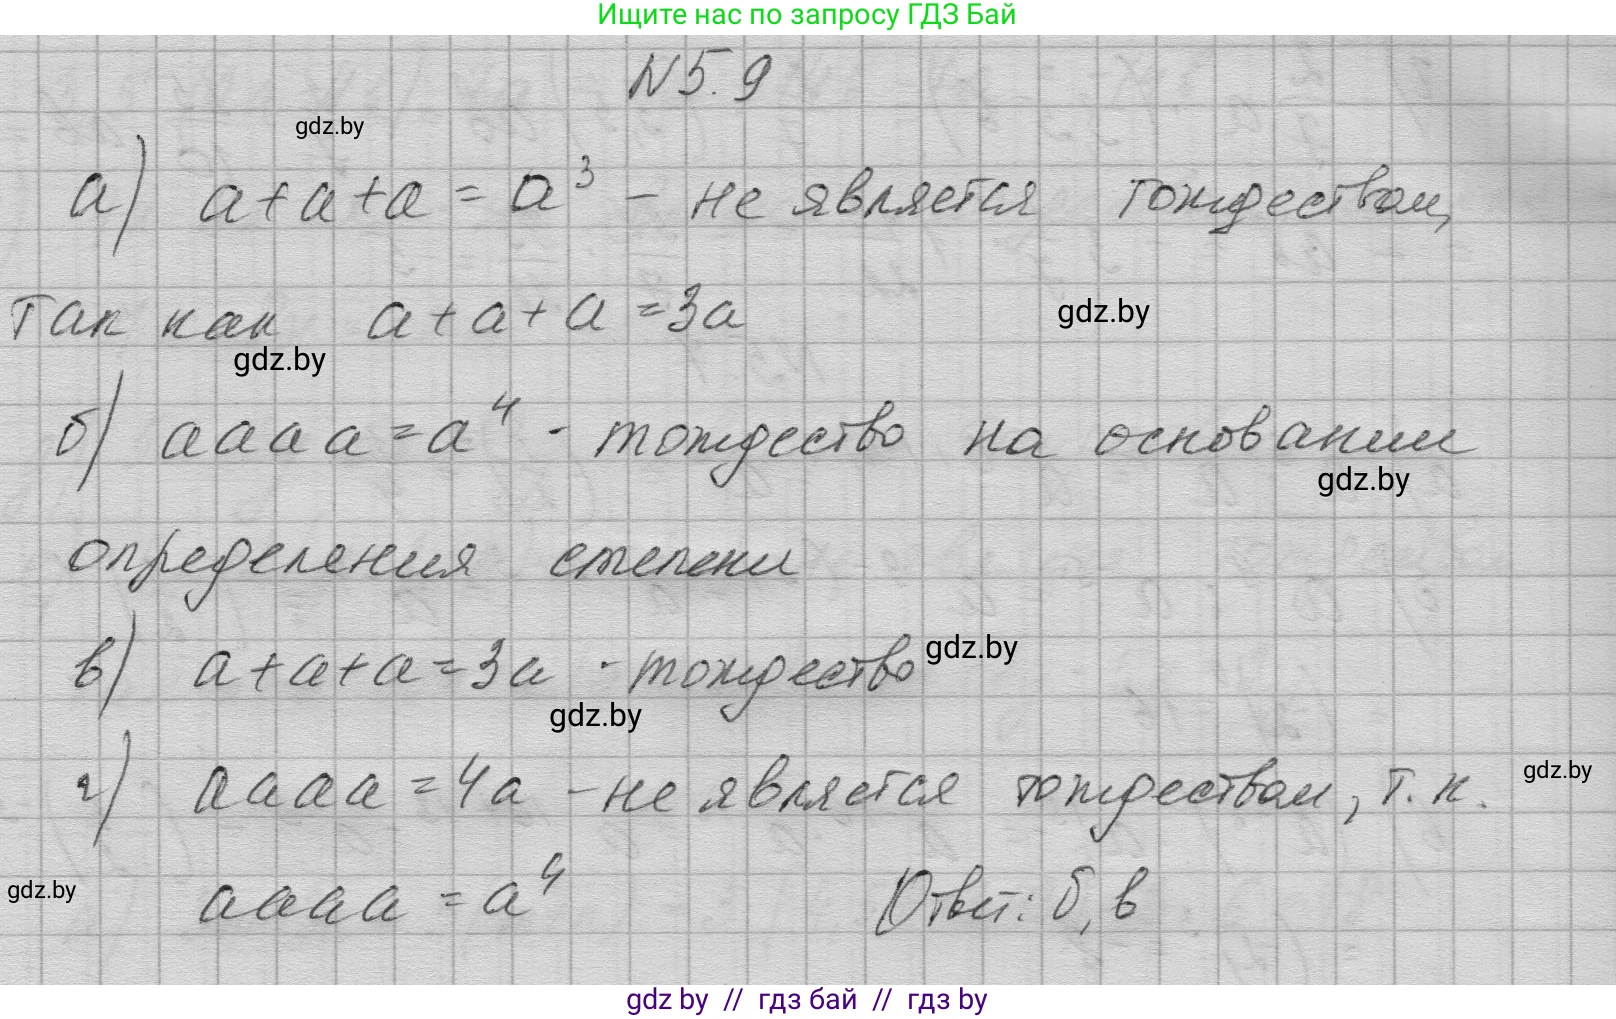 Ищите нас по запросу ГДЗ Бай
N 5.9
gdz.by
а) a+a+a = a³ - не является тождеством,
так как a+a+a =3a
gdz.by
gdz.by
б) aaaa = a⁴ - тождество на основании
gdz.by
определения степени
в) a+a+a=3a - тождество
gdz.by
gdz.by
г) aaaa = 4a - не является тождеством, т.к.
gdz.by
aaaa = a⁴ Ответ: б, в
gdz.by
gdz by // гдз бай // гдз by